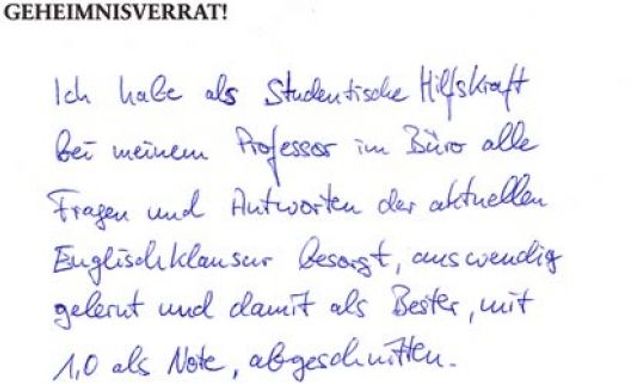 GEHEIMNISVERRAT!
Ich habe als Studentische Hilfskraft
bei meinem Professor im Büro alle
Fragen und Antworten der aktuellen
Englischklausur besorgt, auswendig
gelernt und damit als Bester, mit
1,0 als Note, abgeschnitten.